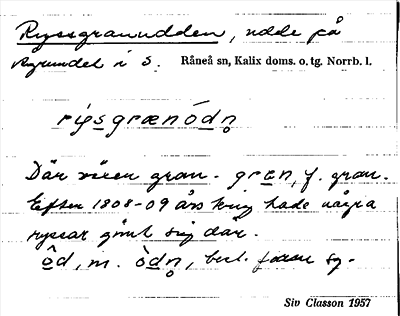 Ryssgranudden, udde på
Rgrundet i S. Råneå sn, Kalix doms. o. tg. Norrb. l.
rysgrænódn̥
Där växer gran. - græn, f. gran.
Efter 1808-09 års krig hade några
ryssar gömt sig där.
ôd, m. òdn̥, best. form sg.
Siv Classon 1957